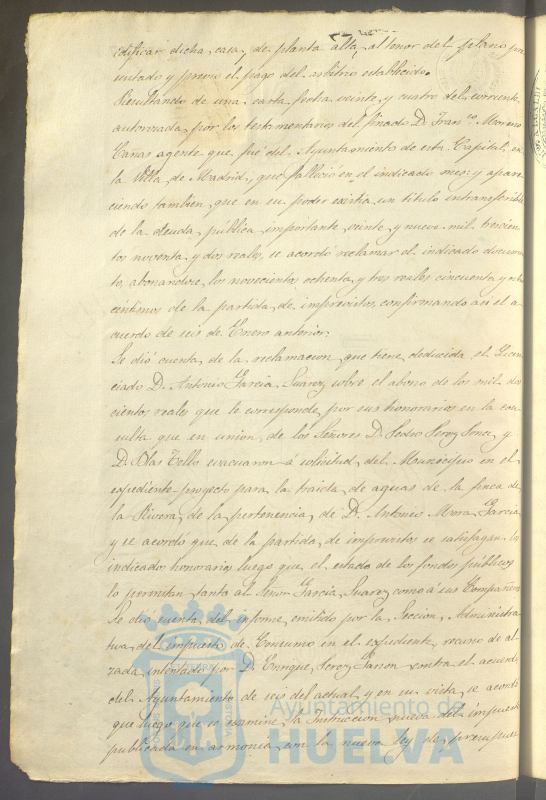 edificar dicha casa de planta alta, al tenor del plano pre
sentado y previo el pago del arbitrio establecido.
Resultando de una carta fecha veinte y cuatro del corriente
autorizada por los testamentarios del finado D. Franco. Moreno
Cañas agente que fué del Ayuntamiento de esta Capital, en
la Villa de Madrid, que falleció en el indicado mes; y apare
ciendo tambien, que en su poder existia un titulo intransferible
de la deuda publica importante veinte y nueve mil trescien
tos noventa y dos reales, se acordó reclamar el indicado documen
to, abonandose los novecientos ochenta y tres reales cincuenta y
centimos de la partida de imprevistos, confirmando asi el a
cuerdo de seis de Enero anterior.
Se dió cuenta de la reclamacion que tiene deducida el Licen
ciado D. Antonio Garcia Suarez sobre el abono de los mil dos
cientos reales que le corresponde por sus honorarios en la con
sulta que en union de los Señores D. Pedro Perez y
D. Blas Tello evacuaron á solicitud del Municipio en el
espediente proyecto para la traida de aguas de la finca de
la Rivera, de la pertenencia de D. Antonio Mora Garcia
y se acordó que de la partida de imprevistos se satisfagan los
indicados honorarios luego que el estado de los fondos públicos
lo permitan tanto al Señor Garcia Suarez como á sus Compañeros
Se dio cuenta del informe emitido por la Seccion Administra
tiva del impuesto de Consumo en el espediente recurso de al
zada intentado por D. Enrique Perez contra el acuerdo
del Ayuntamiento de seis del actual, y en su vista, se acordó
que luego que se examine la Instruccion nueva del impuesto
publicada en armonia con la nueva ley de presupues
Ayuntamiento de
HUELVA